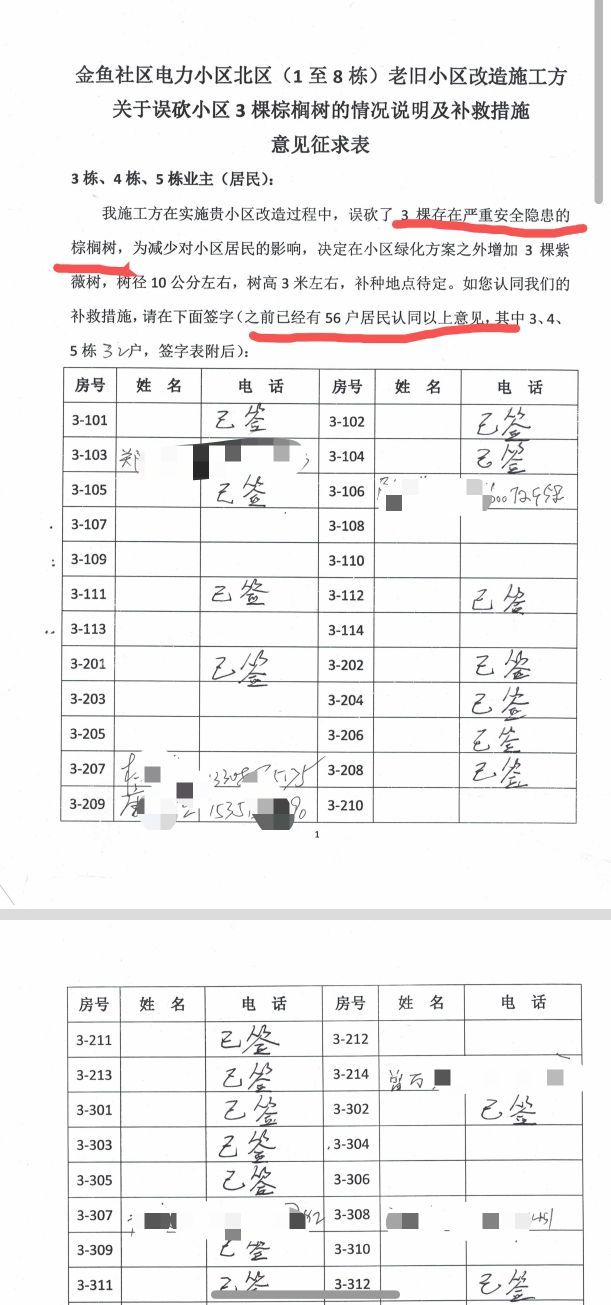 金鱼社区电力小区北区（1 至 8 栋）老旧小区改造施工方
关于误砍小区 3 棵棕榈树的情况说明及补救措施
意见征求表
3 栋、4 栋、5 栋业主（居民）：
我施工方在实施贵小区改造过程中，误砍了 3 棵存在严重安全隐患的
棕榈树，为减少对小区居民的影响，决定在小区绿化方案之外增加 3 棵紫
薇树，树径 10 公分左右，树高 3 米左右，补种地点待定。如您认同我们的
补救措施，请在下面签字（之前已经有 56 户居民认同以上意见，其中 3、4、
5 栋 32 户，签字表附后）：
房号 姓 名 电 话 房号 姓 名 电 话
3-101 已签 3-102 已签
3-103 郑 3-104 已签
3-105 已签 3-106
3-107 3-108
3-109 3-110
3-111 已签 3-112 已签
3-113 3-114
3-201 已签 3-202 已签
3-203 3-204 已签
3-205 3-206 已签
3-207 3-208 已签
3-209 1535 3-210
1
房号 姓 名 电 话 房号 姓 名 电 话
3-211 已签 3-212
3-213 已签 3-214
3-301 已签 3-302 已签
3-303 已签 3-304
3-305 已签 3-306
3-307 3-308
3-309 已签 3-310
3-311 已签 3-312 已签